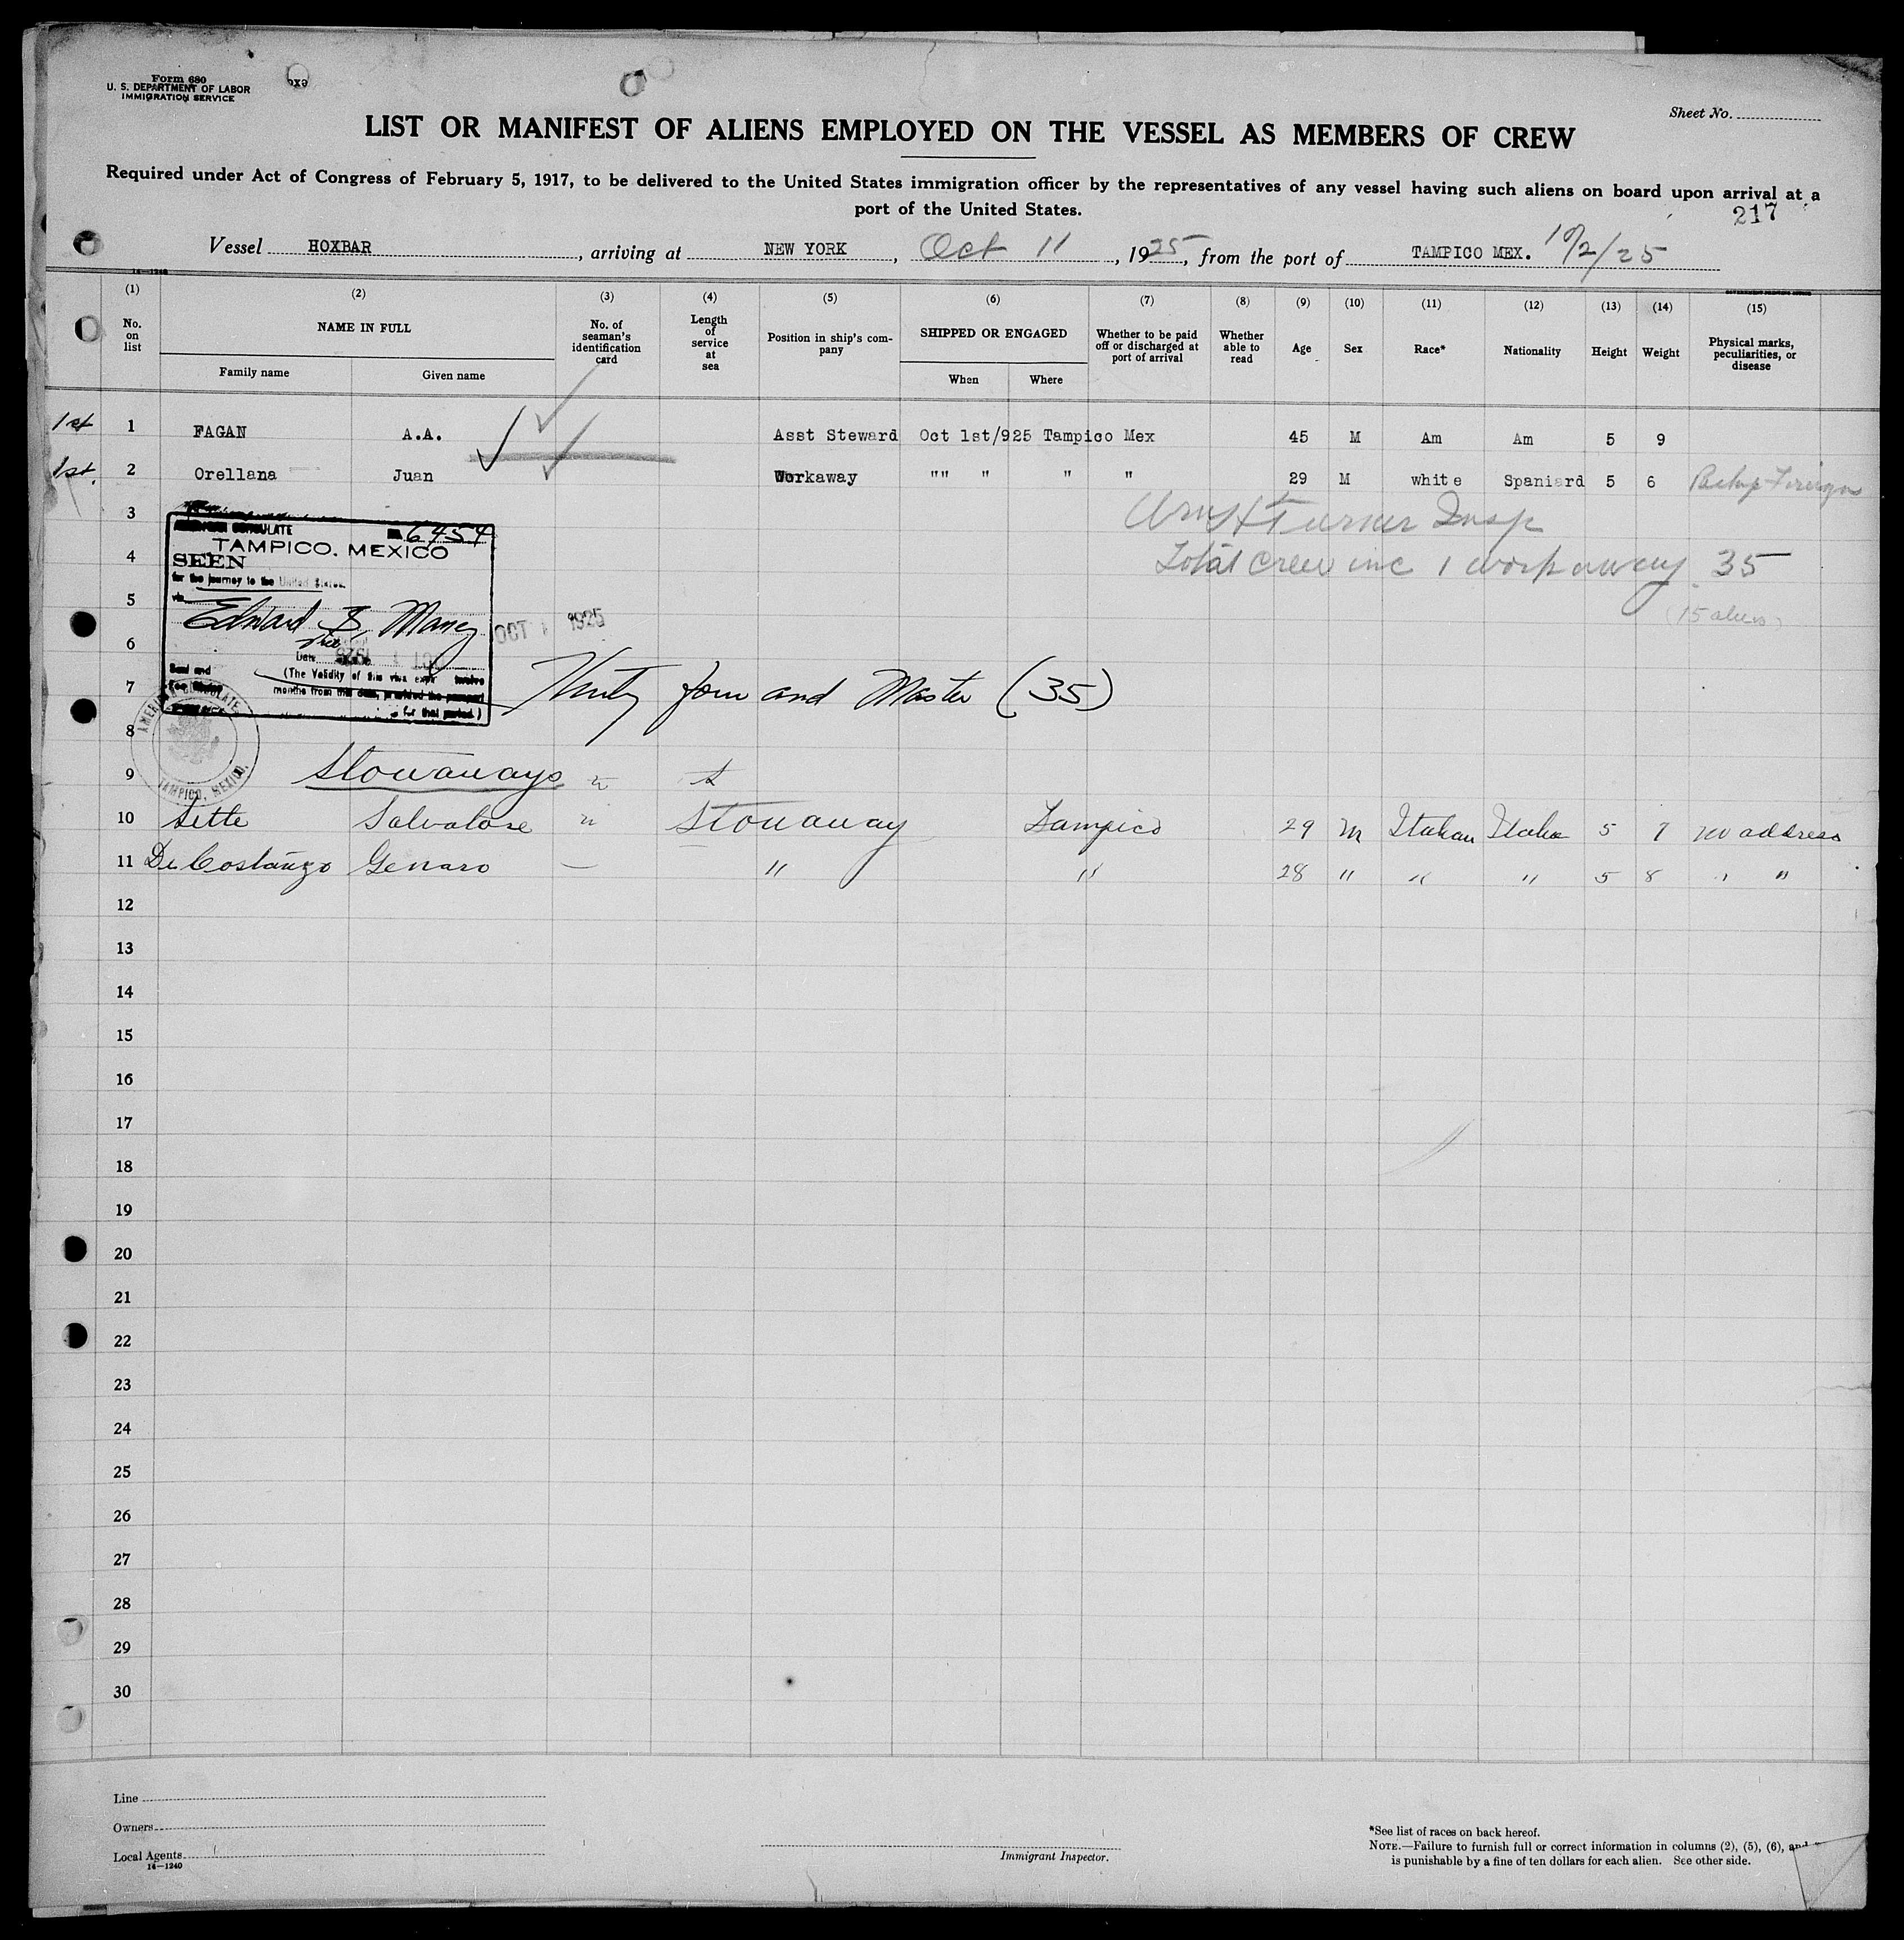 Form 680
U. S. DEPARTMENT OF LABOR
IMMIGRATION SERVICE
Sheet No.
LIST OR MANIFEST OF ALIENS EMPLOYED ON THE VESSEL AS MEMBERS OF CREW
Required under Act of Congress of February 5, 1917, to be delivered to the United States immigration officer by the representatives of any vessel having such aliens on board upon arrival at a
port of the United States.
217
Vessel HOXBAR, arriving at NEW YORK, Oct 11, 1925, from the port of TAMPICO MEX. 10/2/25
14-1240
(1) (2) (3) (4) (5) (6) (7) (8) (9) (10) (11) (12) (13) (14) (15)
No. on list NAME IN FULL No. of seaman's identification card Length of service at sea Position in ship's company SHIPPED OR ENGAGED Whether to be paid off or discharged at port of arrival Whether able to read Age Sex Race* Nationality Height Weight Physical marks, peculiarities, or disease
Family name Given name When Where
1st 1 FAGAN A.A. Asst Steward Oct 1st/925 Tampico Mex 45 M Am Am 5 9
1st. 2 Orellana Juan Workaway "" " " " 29 M white Spaniard 5 6
3 Turner Insp
4 Total crew inc 1 workaway 35
5 (15 aliens)
6
7
8
CONSULATE 6454
TAMPICO, MEXICO
SEEN
for the journey to the United States.
via
Edward S. Maney
Date
OCT 1 1925
Seal and
(The Validity of this visa expires twelve
months from this date, provided the passport
is for that period.)
AMERICAN CONSULATE
TAMPICO, MEXICO.
Thirty four and Master (35)
9 Stowaways
10 Sette Salvatore Stowaway Tampico 29 M Italian Italia 5 7 no address
11 De Costanzo Genaro — " " 28 " " " 5 8 " "
12
13
14
15
16
17
18
19
20
21
22
23
24
25
26
27
28
29
30
Line
Owners
Local Agents
14-1240
Immigrant Inspector.
*See list of races on back hereof.
NOTE.—Failure to furnish full or correct information in columns (2), (5), (6), and
is punishable by a fine of ten dollars for each alien. See other side.